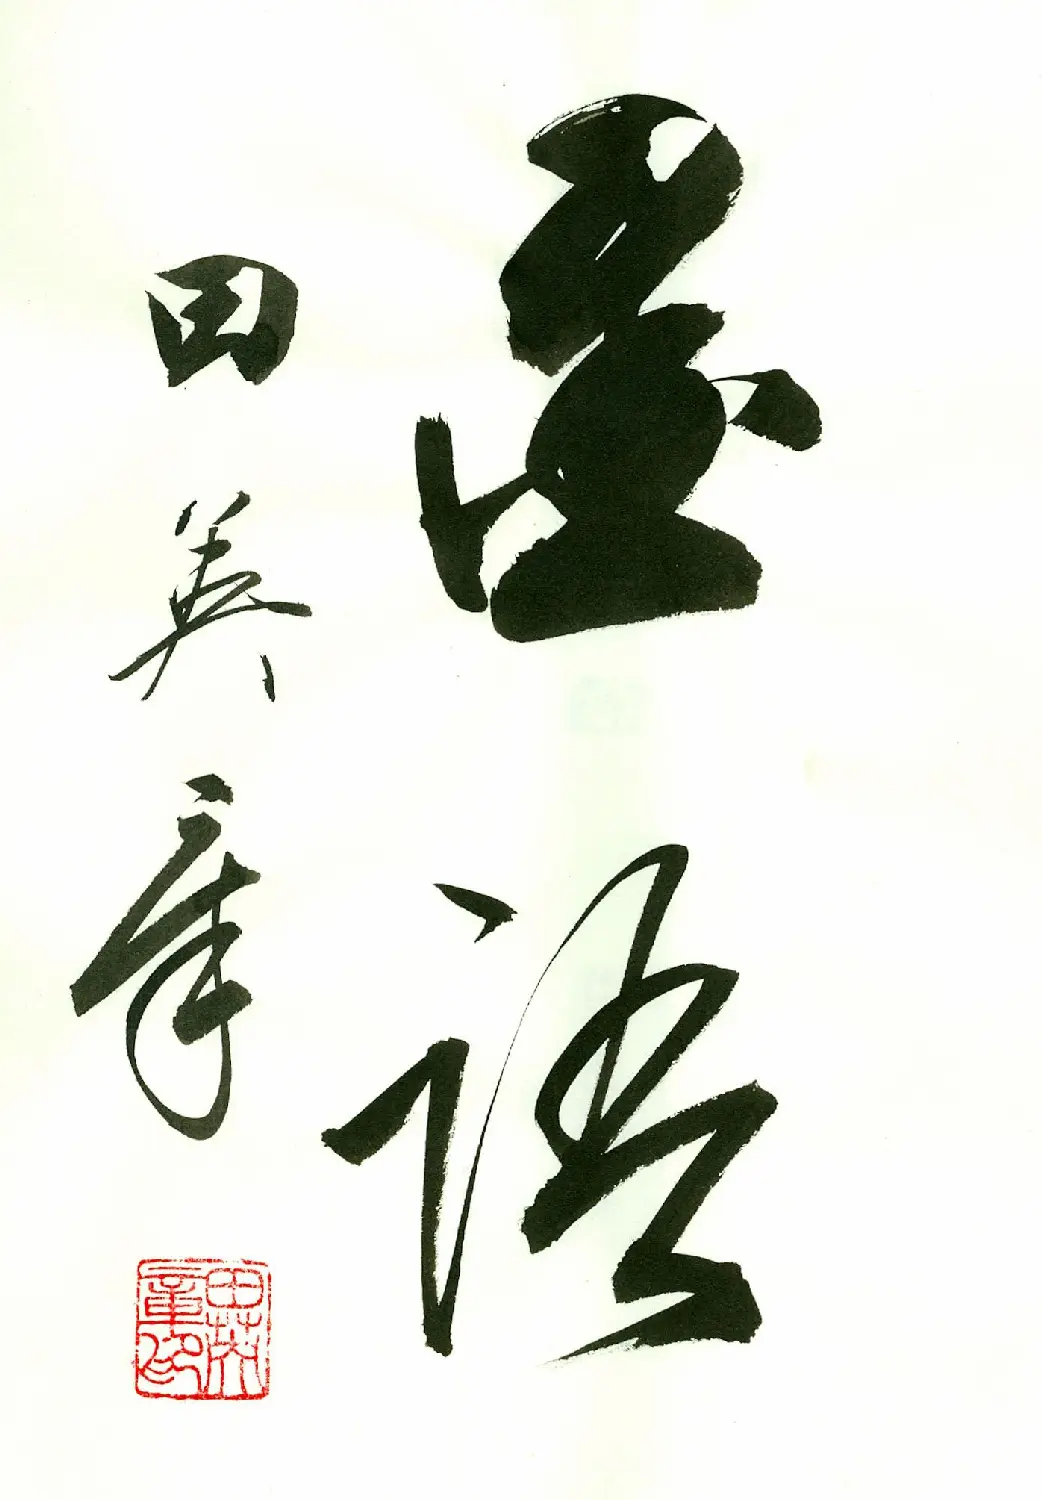 墨语
田英章
田英章印